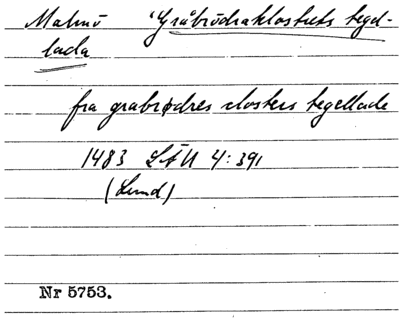 Malmö 'Gråbrödraklostrets tegel-
lada
fra grabrødres closters tegellade
1483 LÄU 4:391
(Lund)
Nr 5753.